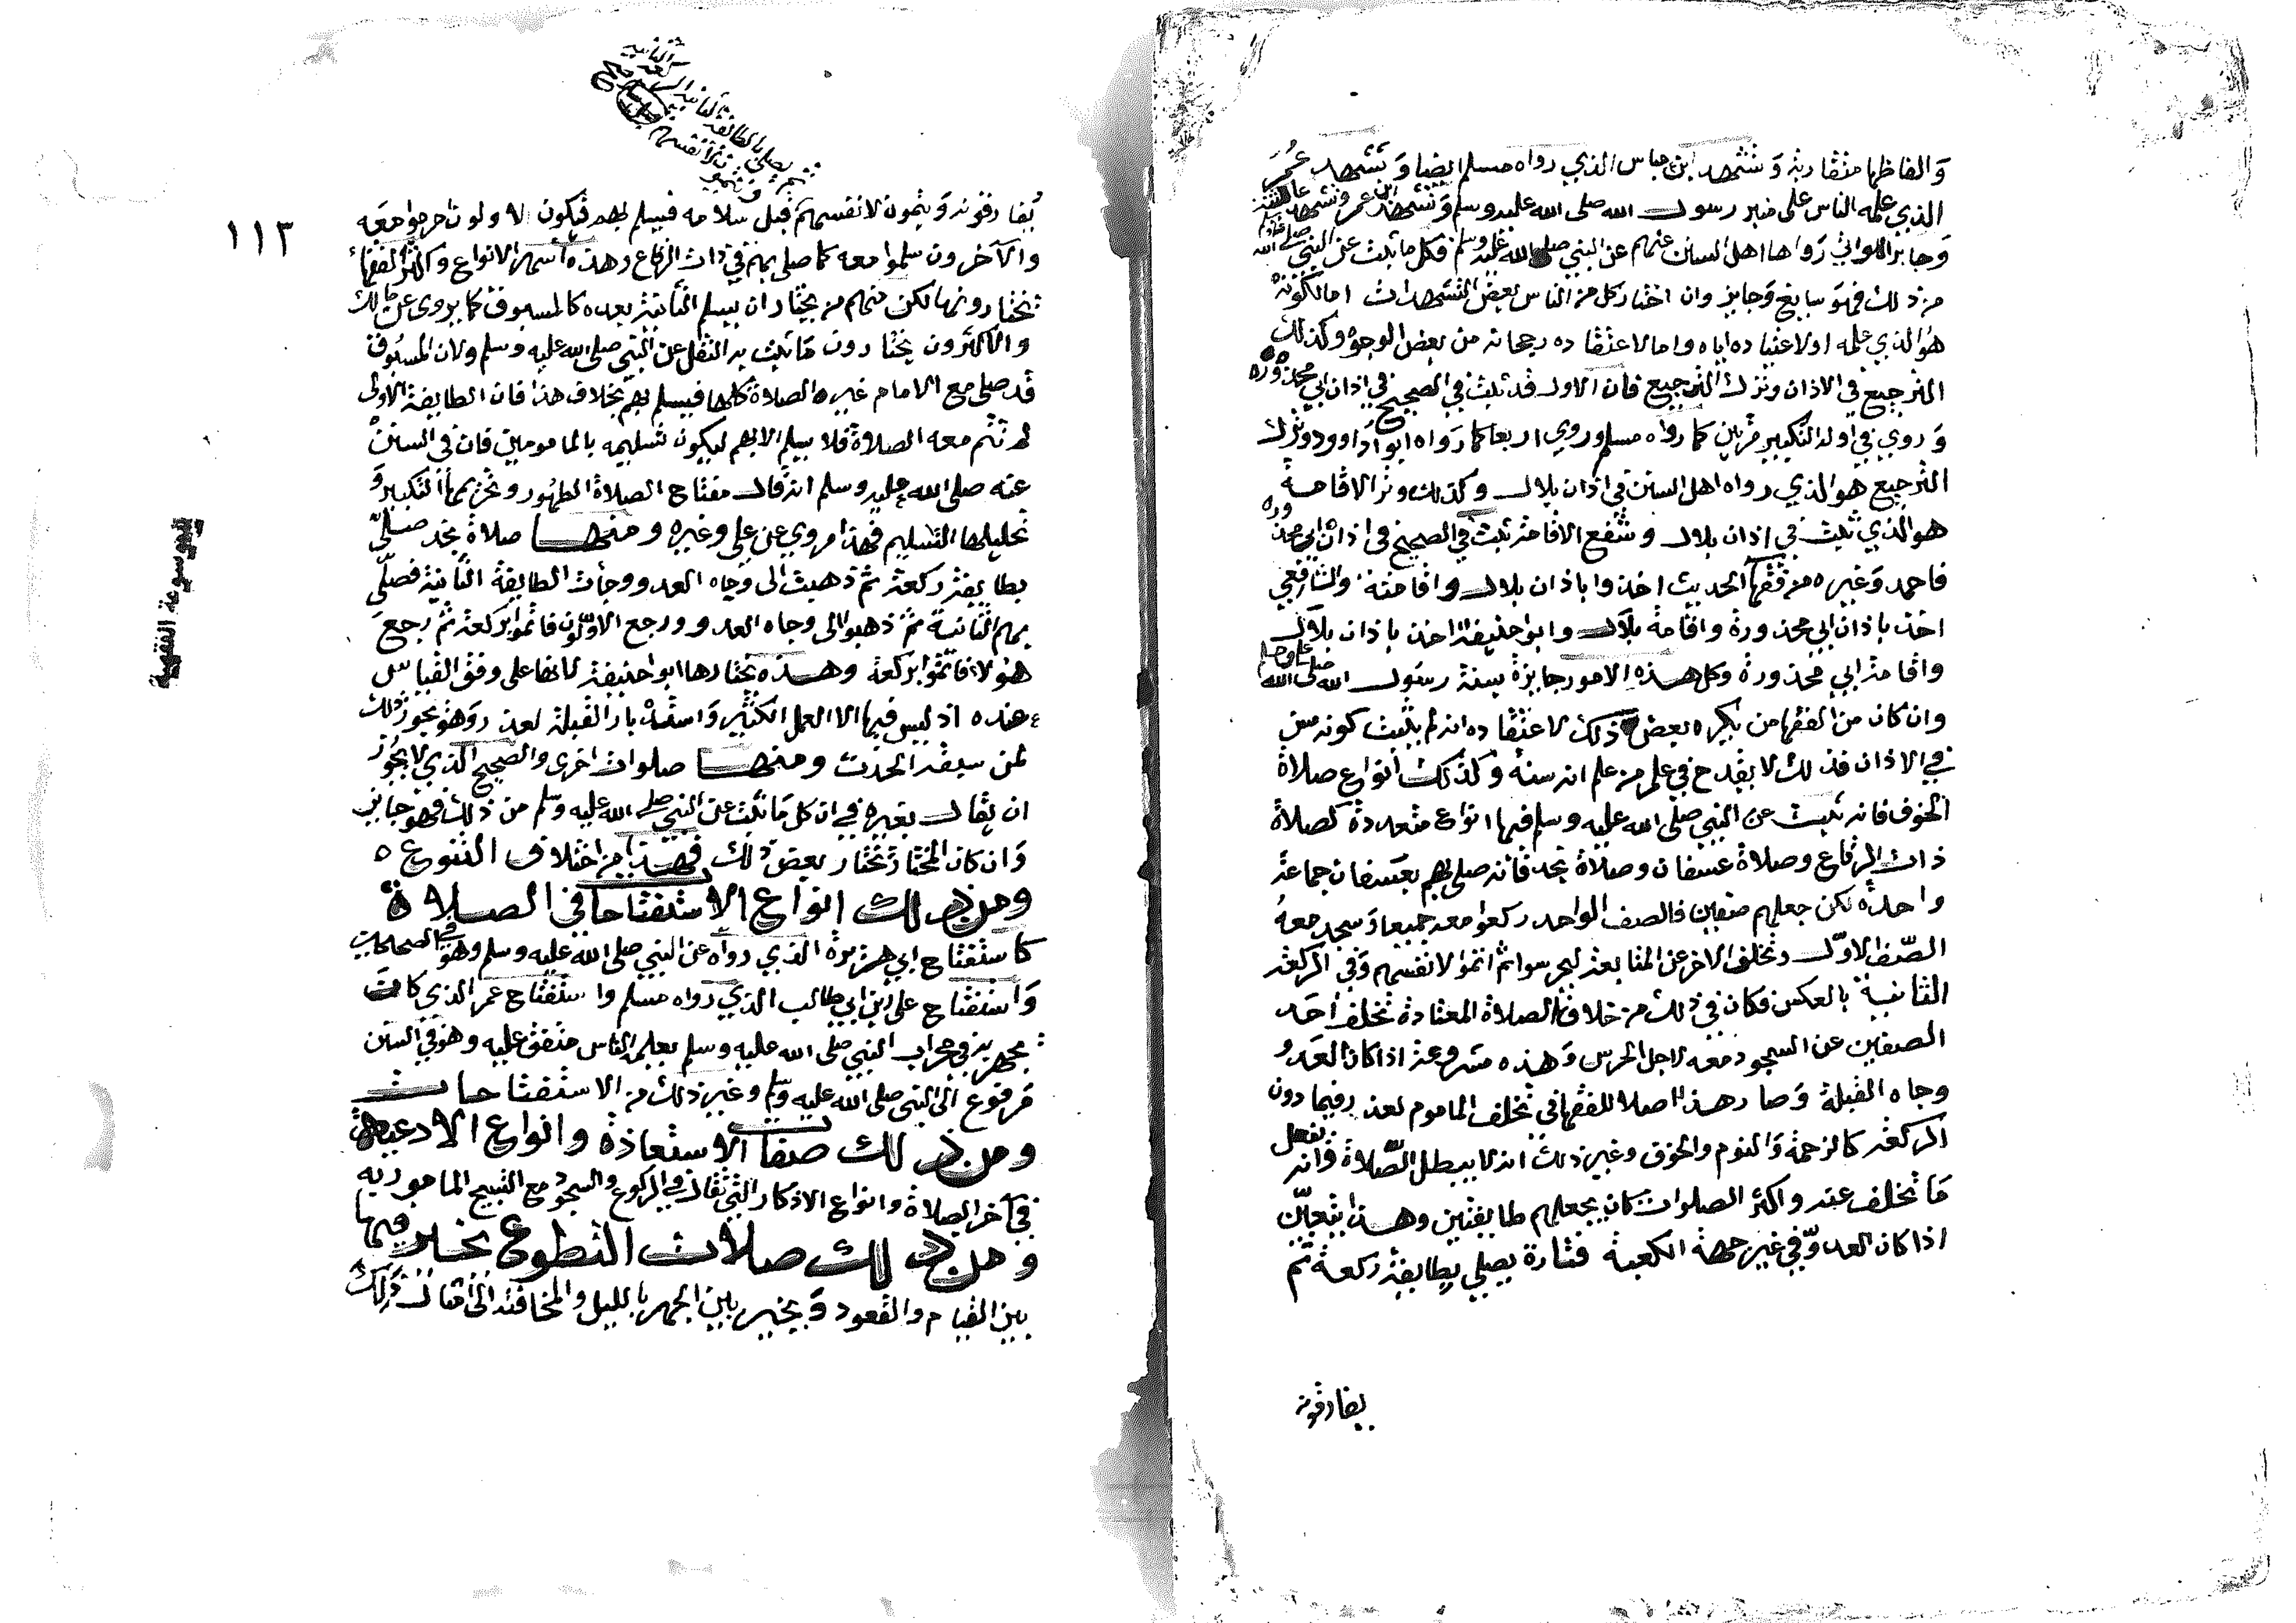 وَالفاظها متقاربة وَتشهد ابن عباس الذي رواه مسلم ايضا وَتشهد عُمَرَ
الذي علمه الناس على منبر رسول الله صلى الله عليه وسلم وَتشهد ابن عمر وتشهد عائشة
وَجابر اللواتي رَواها اهل السنن عنهم عن النبي صلى الله عليه وسلم فكل ما ثبت عن النبي صلى الله عليه وسلم
من ذلك فهوَ سايغ وَجايز وان اختار كل من الناس بعض التشهدات اما لكونه
هُوَ الذي علمه اولاعتياده اياه واما لاعتقاده رجحانه من بعض الوجوه وكذلك
الترجيع في الاذان وترك الترجيع فان الاول قد ثبت في الصحيح في اذان ابي محذورة
وَروي في اوله التكبير مرتين كما رواه مسلم وروي اربعا كما رَواه ابو داوود وترك
الترجيع هو الذي رواه اهل السنن في اذان بلال وكذلك وتر الاقامة
هو الذي ثبت في اذان بلال وشفع الاقامة ثبت في الصحيح في اذان ابي محذورة
فاحمد وَغيره من فقهآ الحديث اخذوا باذان بلال واقامته والشافعي
اخذ باذان ابي محذورة واقامة بلال وابو حنيفة اخذ باذان بلال
واقامة ابي محذورة وكل هذه الامور جايزة بسنة رسول الله صلى الله عليه وسلم
وان كان من الفقها من يكره بعض ذلك لاعتقاده انه لم يثبت كونه سن
في الاذان فذلك لا يقدح في علم من علم انه سنة وكذلك أنواع صلاة
الخوف فانه ثبت عن النبي صلى الله عليه وسلم فيها انواع متعددة كصلاة
ذات الرقاع وصلاة عسفان وصلاة نجد فانه صلى بهم بعسفان جماعة
واحدة لكن جعلهم صفين فالصف الواحد ركعوا معه جميعا وَسجد معهُ
الصّف الاوّل وتخلف الاخر عن المتابعة ليحرسوا ثم اتموا لانفسهم وَفي الركعة
الثانية بالعكس فكان في ذلك من خلاف الصلاة المعتادة تخلف أحَد
الصفين عن السجود معه لاجل الحرس وَهذه مشروعة اذا كان العَدو
وجاه القبلة وَصار هذا اصلا للفقها في تخلف الماموم لعذر فيما دون
الركعة كالزحمة وَالنوم والخوف وغير ذلك انه لا يبطل الصّلاة وانه يفعل
مَا تخلف عنه واكثر الصلوات كان يجعلهم طايفتين وهذا يتعيّن
اذا كان العدوّ في غير جهة الكعبة فتارة يصلي بطايفة ركعة ثم
يفارقونه
ثم يصلي بالطائفة الثانية الركعة الثانية
ويتمون لانفسهم
١١٣
يُفارقونه وَيتمون لانفسهم ثم قبل سلامه فيسلم بهم فيكون الاولون احرموا معَه
والآخرون سلموا معه كما صلى بهم في ذات الرقاع وهذه أشهر الانواع وَاكثر الفقهآء
يختارونها لكن منهم من يختار ان يسلم الثانية بعده كالمسبوق كما يروى عن مالك
والاكثرون يختارون مَا ثبت به النقل عن النبي صلى الله عليه وسلم ولان المسبُوق
قد صلى مع الامام غيره الصلاة كلها فيسلم بهم بخلاف هذا فان الطايفة الاولى
لم تتم معه الصلاة فلا يسلم الا بهم ليكون تسليمه بالمامومين فان في السنن
عنه صلى الله عليه وسلم انه قال مفتاح الصلاة الطهُور وتحريمها التكبير وَ
تحليلها التسليم فهذا مروي عن علي وغيره ومنها صلاة نجد صلّى
بطايفة ركعة ثم ذهبت الى وجاه العدو وجأت الطايفة الثانية فصلّى
بهم الثانية ثمّ ذهبوا الى وجاه العدو ورجع الاوّلون فاتموا بركعة ثم رجعَ
هؤلاء فاتمّوا بركعة وهذه يختارها ابو حنيفة لانها على وفق القياس
عنده اذ ليس فيها الا العمل الكثير وَاستدبار القبلة لعذر وَهوَ يجوز ذلك
لمن سبقه الحدث ومنها صلوات اخرى والصحيح الذي لا يجُوز
ان يقال بغيره في ان كل مَا ثبت عن النبي صلى الله عليه وسلم من ذلك فهوَ جايز
وَان كان المختار يختار بعض ذلك فهذا من اختلاف التنوع ه
ومن ذلك انواع الاستفتاحات في الصلاة
كاستفتاح ابي هريرة الذي رواه عن النبي صلى الله عليه وسلم وهوَ في الصحيحين
وَاستفتاح علي ابن ابي طالب الذي رواه مسلم واستفتاح عمر الذي كانَ
يجهر به في محراب النبي صلى الله عليه وسلم يعلمه الناس متفق عليه وهوَ في السنن
مَرفوع الى النبي صلى الله عليه وسلم وغير ذلك من الاستفتاحات
ومن ذلك صفات الاستعاذة وانواع الادعية
في آخر الصلاة وانواع الاذكار التي تقال في الركوع والسجود مع التسبيح المامور به
ومن ذلك صلات التطوع يخير فيها
بين القيام والقعود وَيخير بين الجهر بالليل والمخافتة الى امثال ذَلِكَ
الموسوعة الفقهية